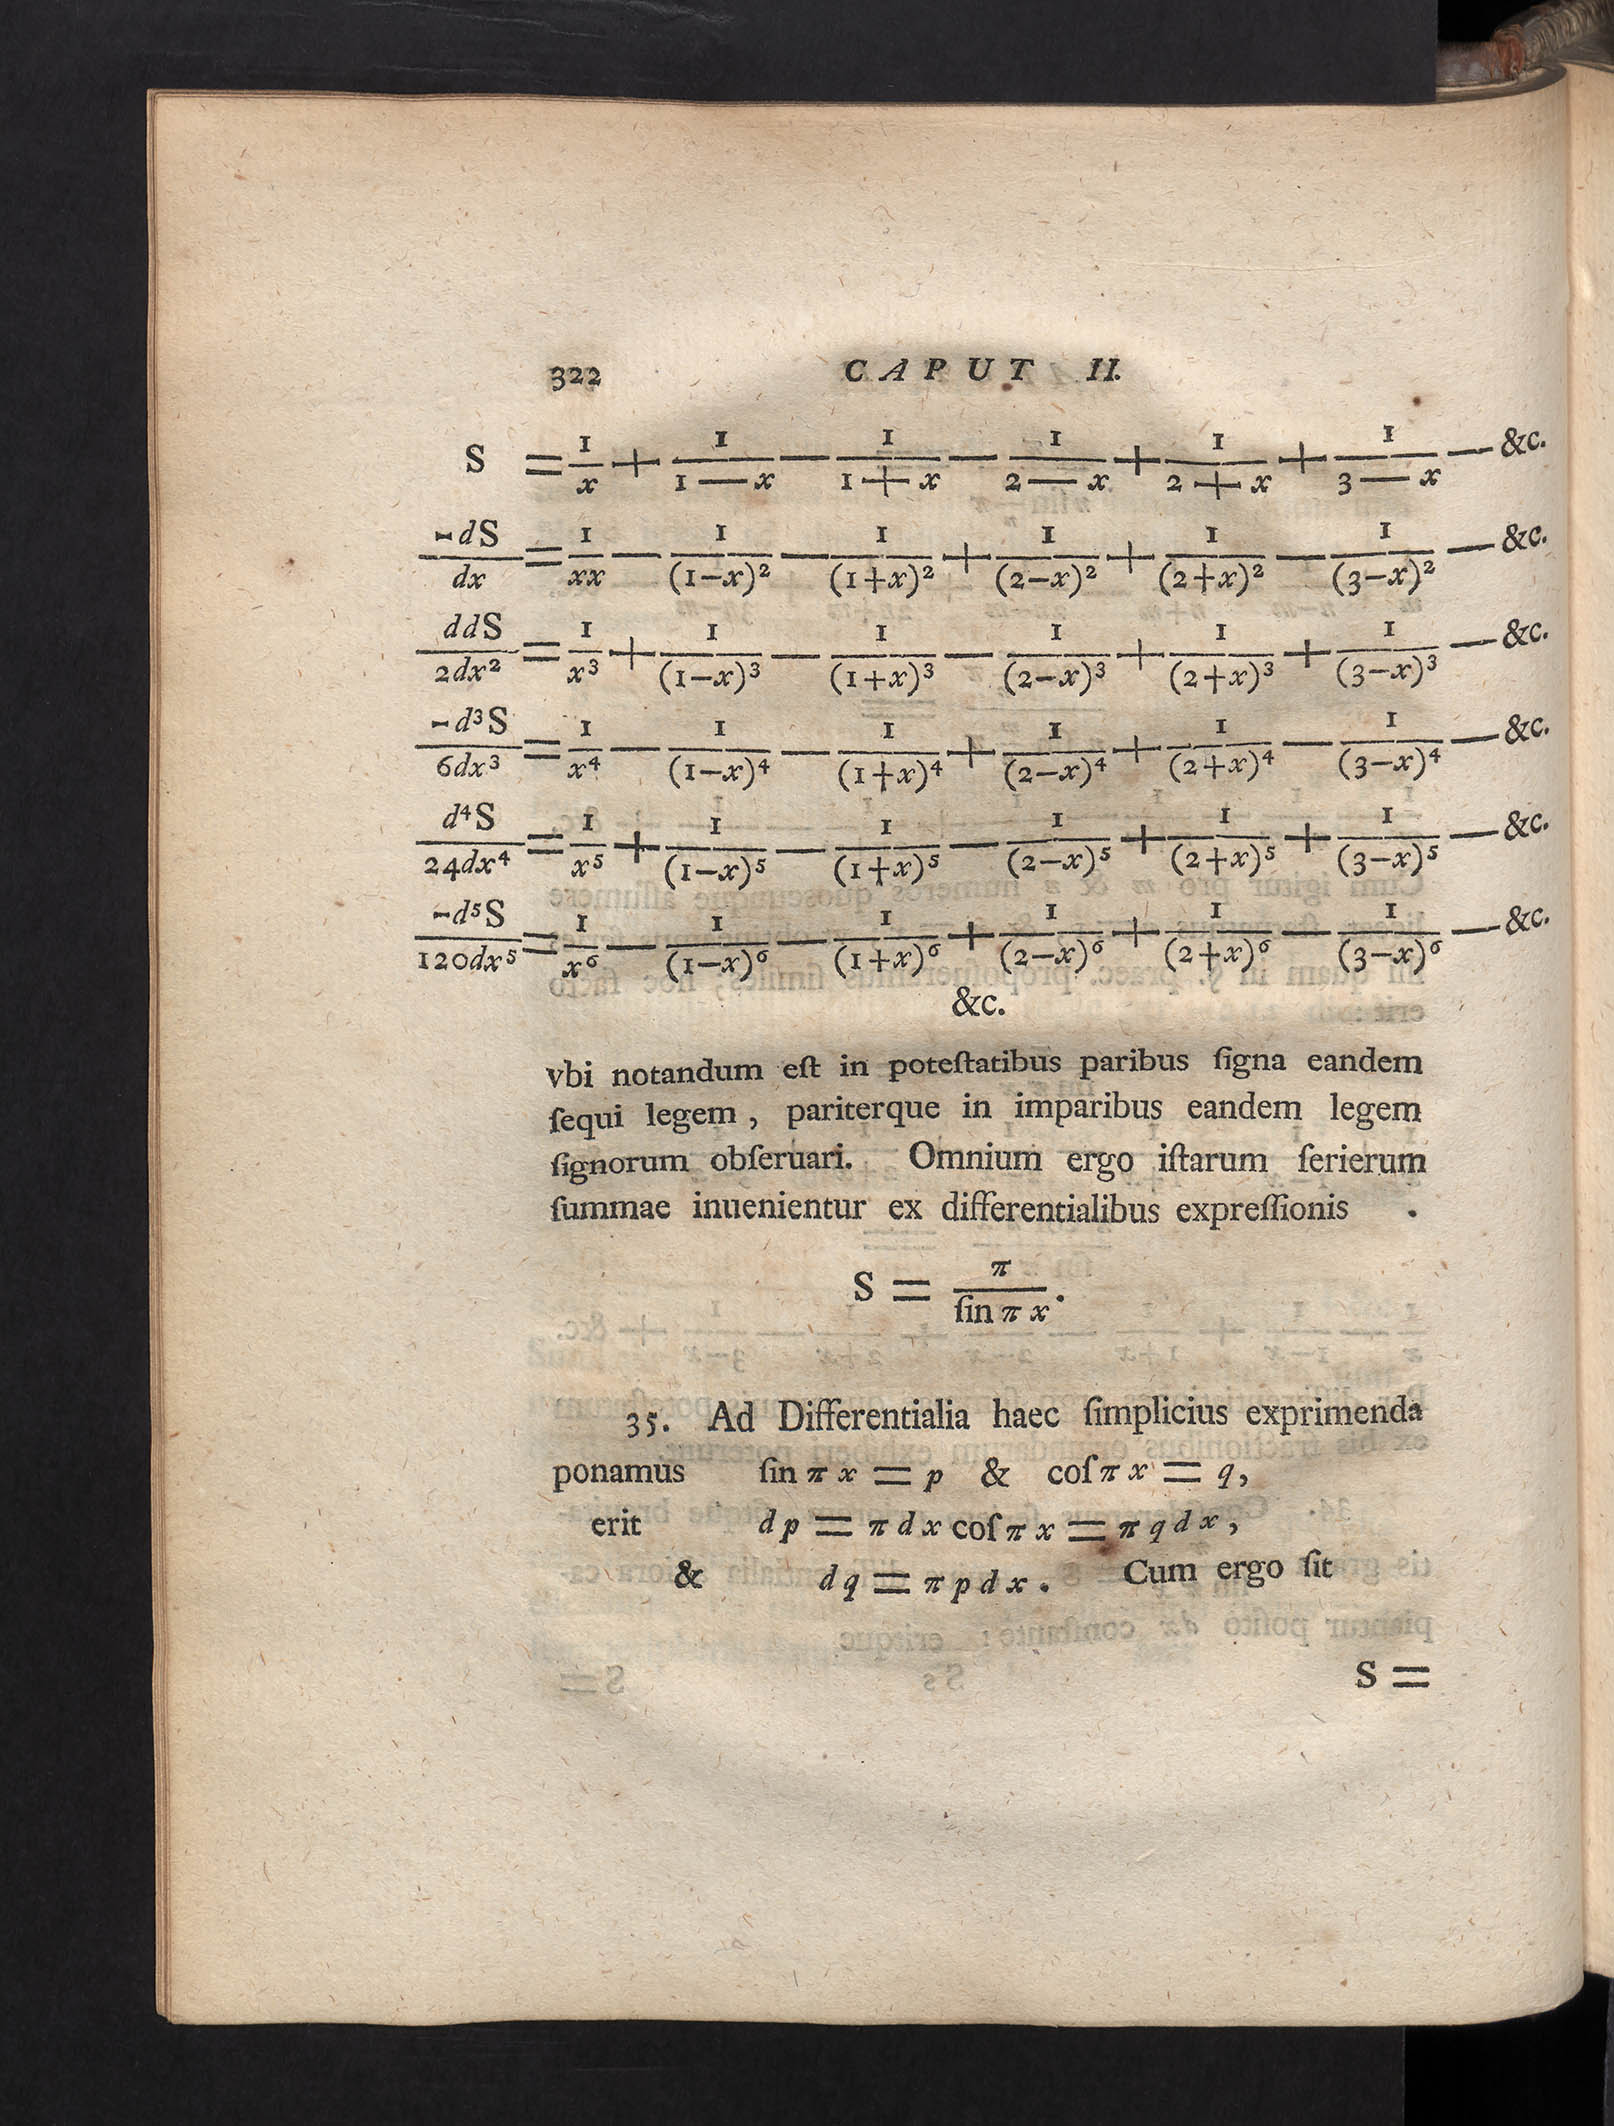 322 CAPUT II.
S = 1/x + 1/(1—x) — 1/(1+x) — 1/(2—x) + 1/(2+x) + 1/(3—x) — &c.
-dS/dx = 1/xx — 1/(1-x)² — 1/(1+x)² + 1/(2-x)² + 1/(2+x)² — 1/(3-x)² — &c.
ddS/2dx² = 1/x³ + 1/(1-x)³ — 1/(1+x)³ — 1/(2-x)³ + 1/(2+x)³ + 1/(3-x)³ — &c.
-d³S/6dx³ = 1/x⁴ — 1/(1-x)⁴ — 1/(1+x)⁴ + 1/(2-x)⁴ + 1/(2+x)⁴ — 1/(3-x)⁴ — &c.
d⁴S/24dx⁴ = 1/x⁵ + 1/(1-x)⁵ — 1/(1+x)⁵ — 1/(2-x)⁵ + 1/(2+x)⁵ + 1/(3-x)⁵ — &c.
-d⁵S/120dx⁵ = 1/x⁶ — 1/(1-x)⁶ — 1/(1+x)⁶ + 1/(2-x)⁶ + 1/(2+x)⁶ — 1/(3-x)⁶ — &c.
&c.
vbi notandum eſt in poteſtatibus paribus ſigna eandem
ſequi legem, pariterque in imparibus eandem legem
ſignorum obſeruari. Omnium ergo iſtarum ſerierum
ſummae inuenientur ex differentialibus expreſſionis .
S = π/ſin π x.
35. Ad Differentialia haec ſimplicius exprimenda
ponamus ſin π x = p & coſ π x = q,
erit dp = π dx coſ π x = π q dx,
& dq = π p dx. Cum ergo ſit
S =